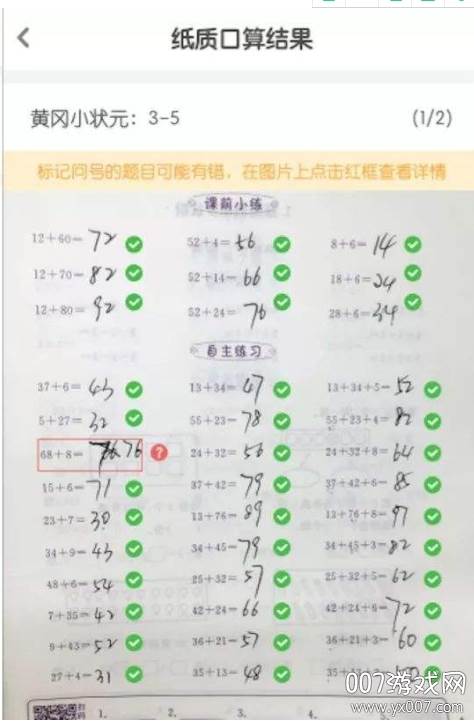 纸质口算结果
黄冈小状元：3-5 (1/2)
标记问号的题目可能有错，在图片上点击红框查看详情
课前小练
12+60=72 52+4=56 8+6=14
12+70=82 52+14=66 18+6=24
12+80=92 52+24=76 28+6=34
自主练习
37+6=43 13+34=47 13+34+5=52
5+27=32 55+23=78 55+23+4=82
68+8=76 ? 24+32=56 24+32+8=64
15+6=71 37+42=79 37+42+6=85
23+7=30 13+76=89 13+76+8=97
34+9=43 34+45=79 34+45+3=82
48+6=54 25+32=57 25+32+5=62
7+35=42 42+24=66 42+24+6=72
9+43=52 36+21=57 36+21+3=60
27+4=31 35+13=48 35+13+2=50
扫码 1. 2. 3. 4.
007游戏网
www.yx007.com